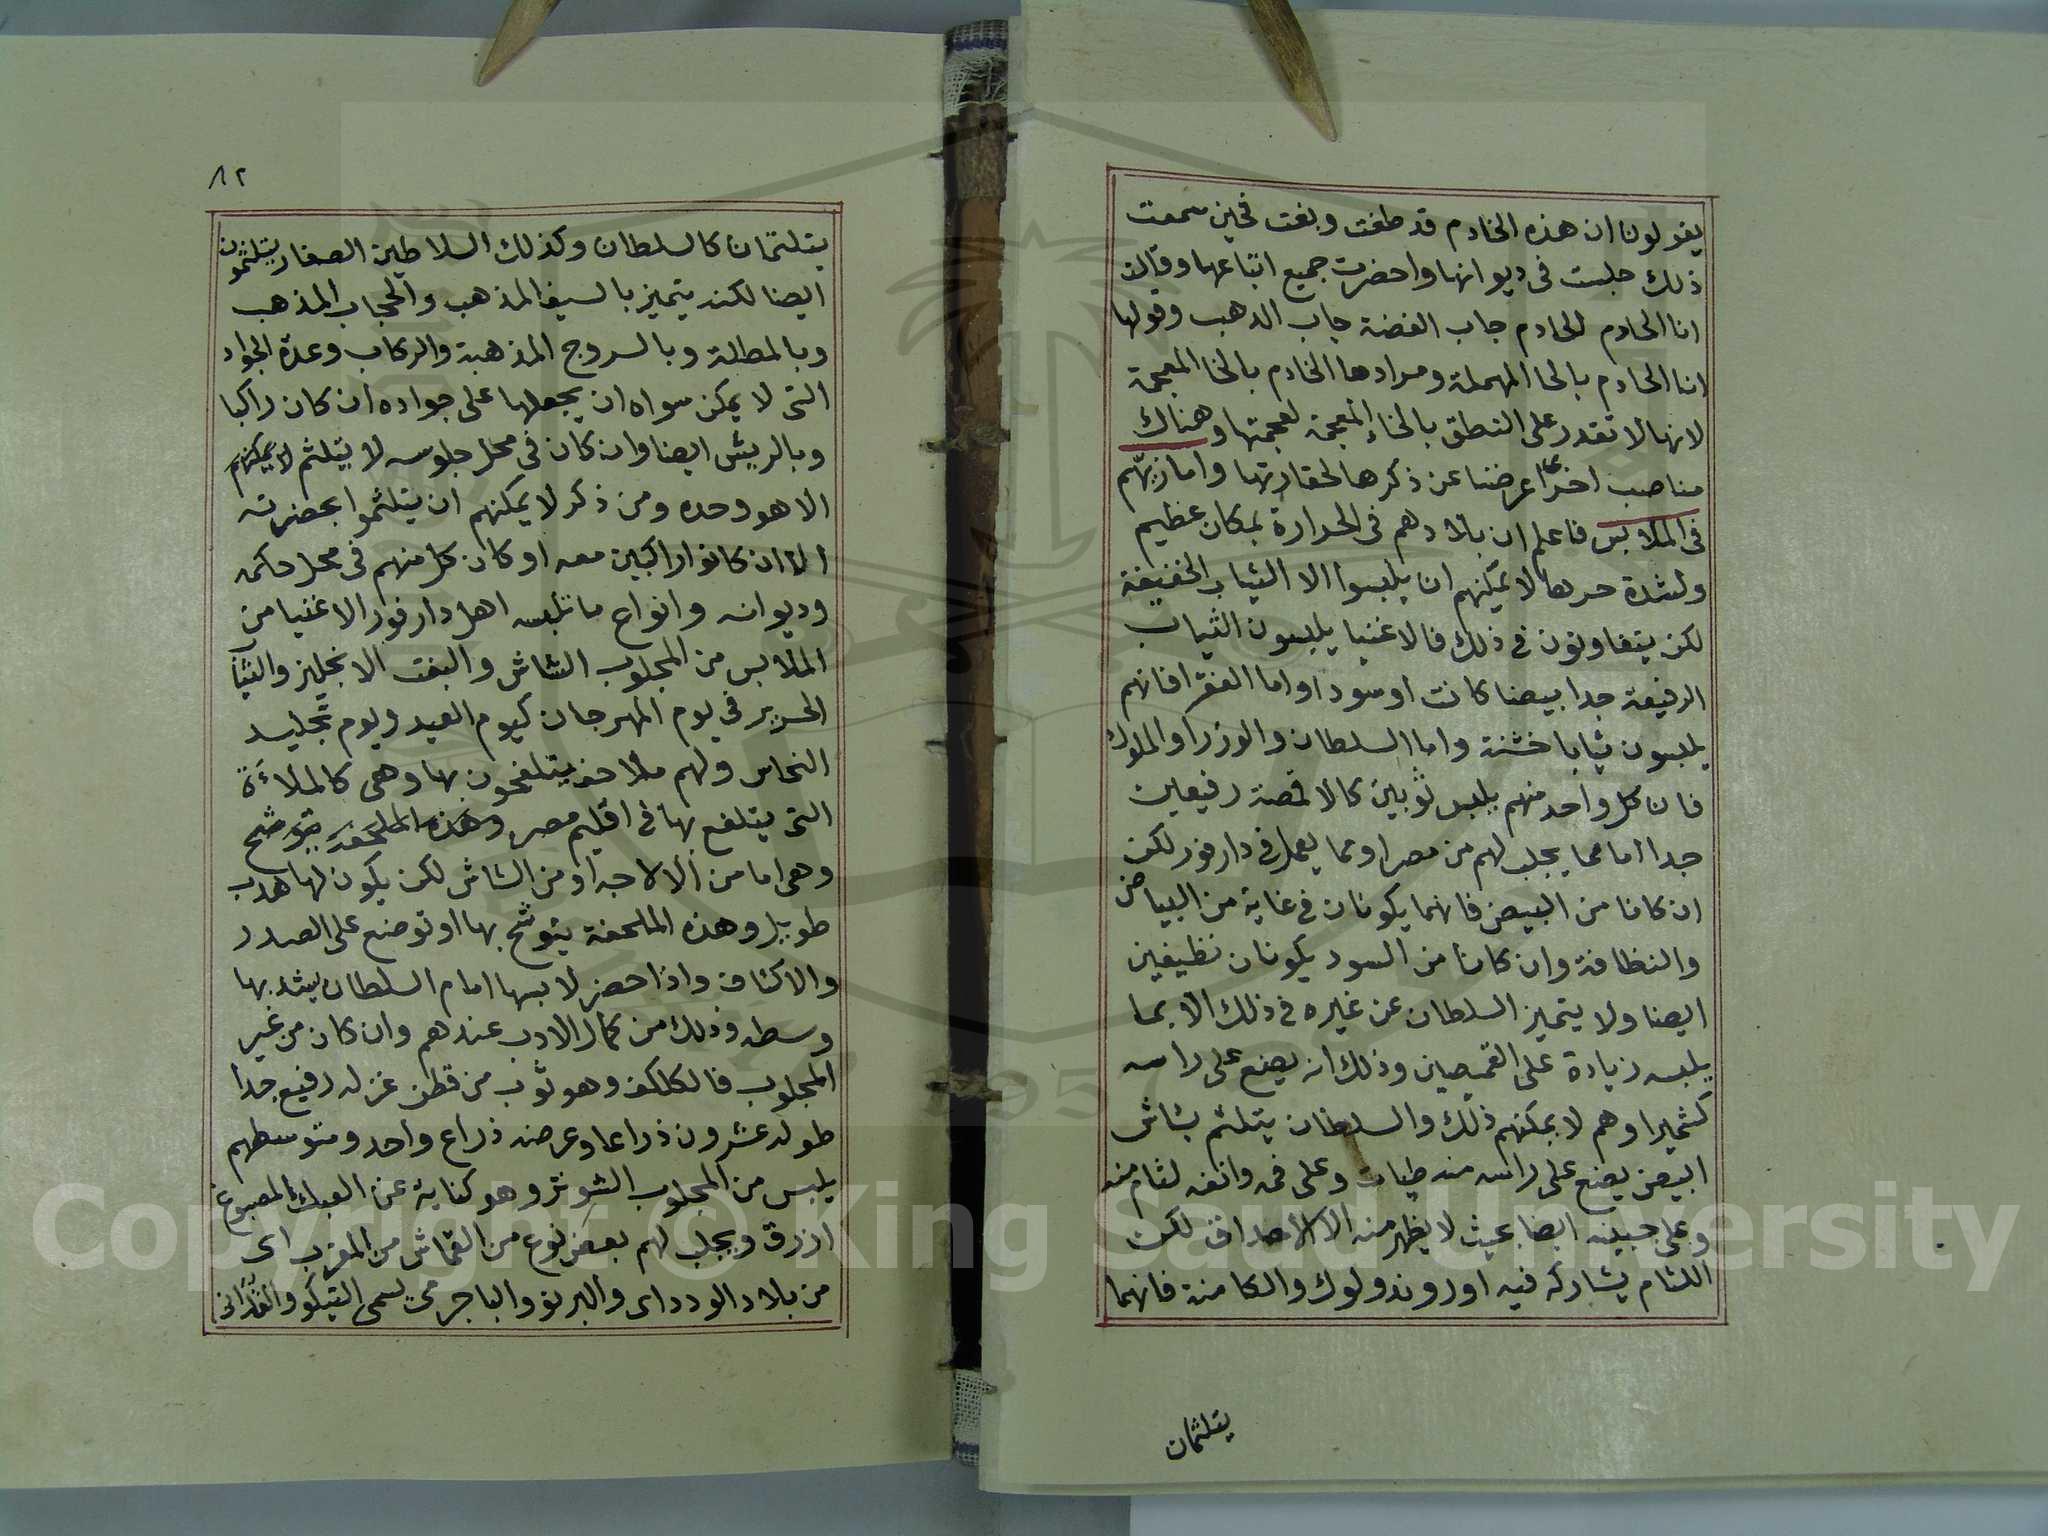 يقولون ان هذه الخادم قد طغت وبغت فحين سمعت
ذلك جلست في ديوانها واحضرت جميع اتباعها وقالت
انا الحادم الحادم جاب الفضة جاب الدهب وقولها
انا الحادم بالحا المهملة ومرادها الخادم بالخا المعجمة
لانها لا تقدر على النطق بالخاء المعجمة لعجمتها وهناك
مناصب اخرى اعرضنا عن ذكرها لحقارتها واما زيهم
في الملابس فاعلم ان بلادهم في الحرارة بمكان عظيم
ولشدة حرها لا يمكنهم ان يلبسوا الا الثياب الخفيفة
لكن يتفاوتون في ذلك فالاغنيا يلبسون الثياب
الرفيعة جدا بيضا كانت او سودا واما الفقرا فانهم
يلبسون ثيابا خشنة واما السلطان والوزرا والملوك
فان كل واحد منهم يلبس ثوبين كالاقمصة رفيعين
جدا اما مما يجلب لهم من مصر او مما يعمل في دارفور لكن
ان كانا من البيض فانهما يكونان في غاية من البياض
والنظافة وان كانا من السود يكونان نظيفين
ايضا ولا يتميز السلطان عن غيره في ذلك الا بما
يلبسه زيادة على القميصين وذلك انه يضع على راسه
كشميرا وهم لا يمكنهم ذلك والسلطان يتلثم بشاش
ابيض يضع على راسه منه طيات وعلى فمه وانفه لثام منه
وعلى جبينه ايضا بحيث لا يظهر منه الا الاحداق لكن
اللثام يشاركه فيه اوروندولوك والكامنة فانهما
يتلثمان
٨٢
يتلثمان كالسلطان وكذلك السلاطين الصغار يتلثمون
ايضا لكنه يتميز بالسيف المذهب والحجاب المذهب
وبالمظلة وبالسروج المذهبة والركاب وعدة الجواد
التي لا يمكن سواه ان يجعلها على جواده ان كان راكبا
وبالريش ايضا وان كان في محل جلوسه لا يتلثم لا يمكنهم
الا هو وحده ومن ذكر لا يمكنهم ان يتلثموا بحضرته
الا ان كانوا راكبين معه او كان كل منهم في محل حكمه
وديوانه وانواع ما تلبسه اهل دارفور الاغنيا من
الملابس من المجلوب الشاش والبفت الانجليز والثياب
الحرير في يوم المهرجان كيوم العيد ويوم تجليد
النحاس ولهم ملاحف يتلفحون بها وهي كالملاءة
التي يتلفع بها في اقليم مصر وهذه الملحفة يتوشح
وهي اما من الالاجه او من الشاش لكن يكون لها هدب
طويل وهذه الملحفة يتوشح بها او توضع على الصدر
والاكتاف واذا حضر لابسها امام السلطان يشد بها
وسطه وذلك من كمال الادب عندهم وان كان من غير
المجلوب فالكلكف وهو ثوب من قطن غزله رفيع جدا
طوله عشرون ذراعا وعرضه ذراع واحد ومتوسطهم
يلبس من المجلوب الشوتر وهو كناية عن العبك المصبوغ
ازرق ويجلب لهم بعض نوع من القماش من المغرب اى
من بلاد الوداى والبرنو والباجرمى يسمى التيكو والقدانى
Copyright © King Saud University